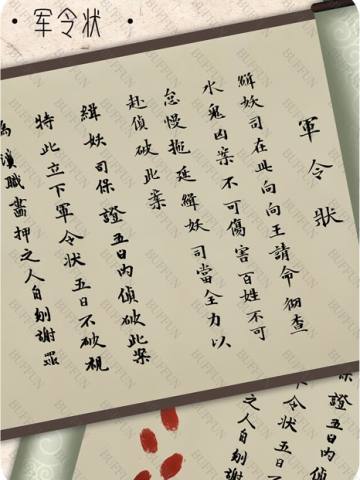 · 军令状 ·
軍令狀
緝妖司在此向向王請命徹查
水鬼凶案不可傷害百姓不可
怠慢拖延緝妖司當全力以
赴偵破此案
緝妖司保證五日內偵破此案
特此立下軍令狀五日不破視
為瀆職畵押之人自刎謝罪
保證五日內
軍令狀五日不
之人自刎謝
BUFFUN